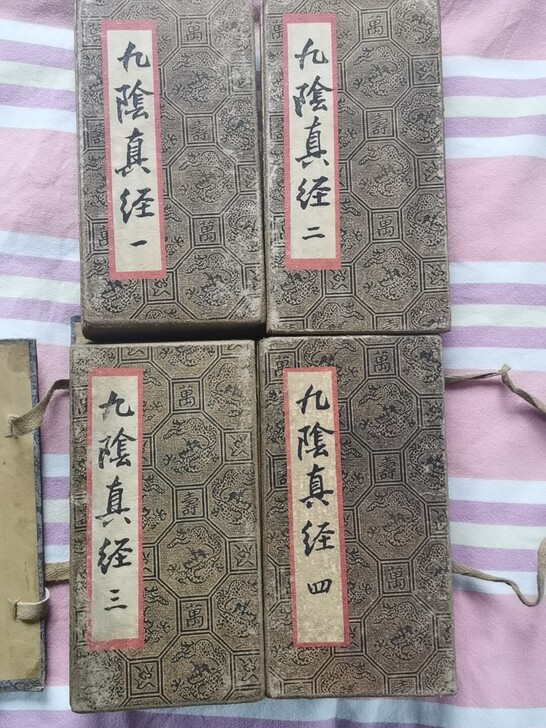 九陰真经一
九陰真经二
九陰真经三
九陰真经四
萬
壽
萬
萬
壽
萬
萬
壽
萬
萬
壽
萬